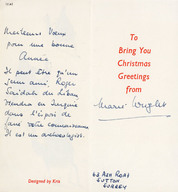 Meilleurs Vœux
pour une bonne
Année
Il peut être qu'un
jeune ami, Roger
Saïdah du Liban
viendra en
dans l'
faire votre connaissance
Il est un archéologiste.
Designed by Kris
To
Bring You
Christmas
Greetings
from
Marie Wright
62 Ash Road
Sutton
Surrey